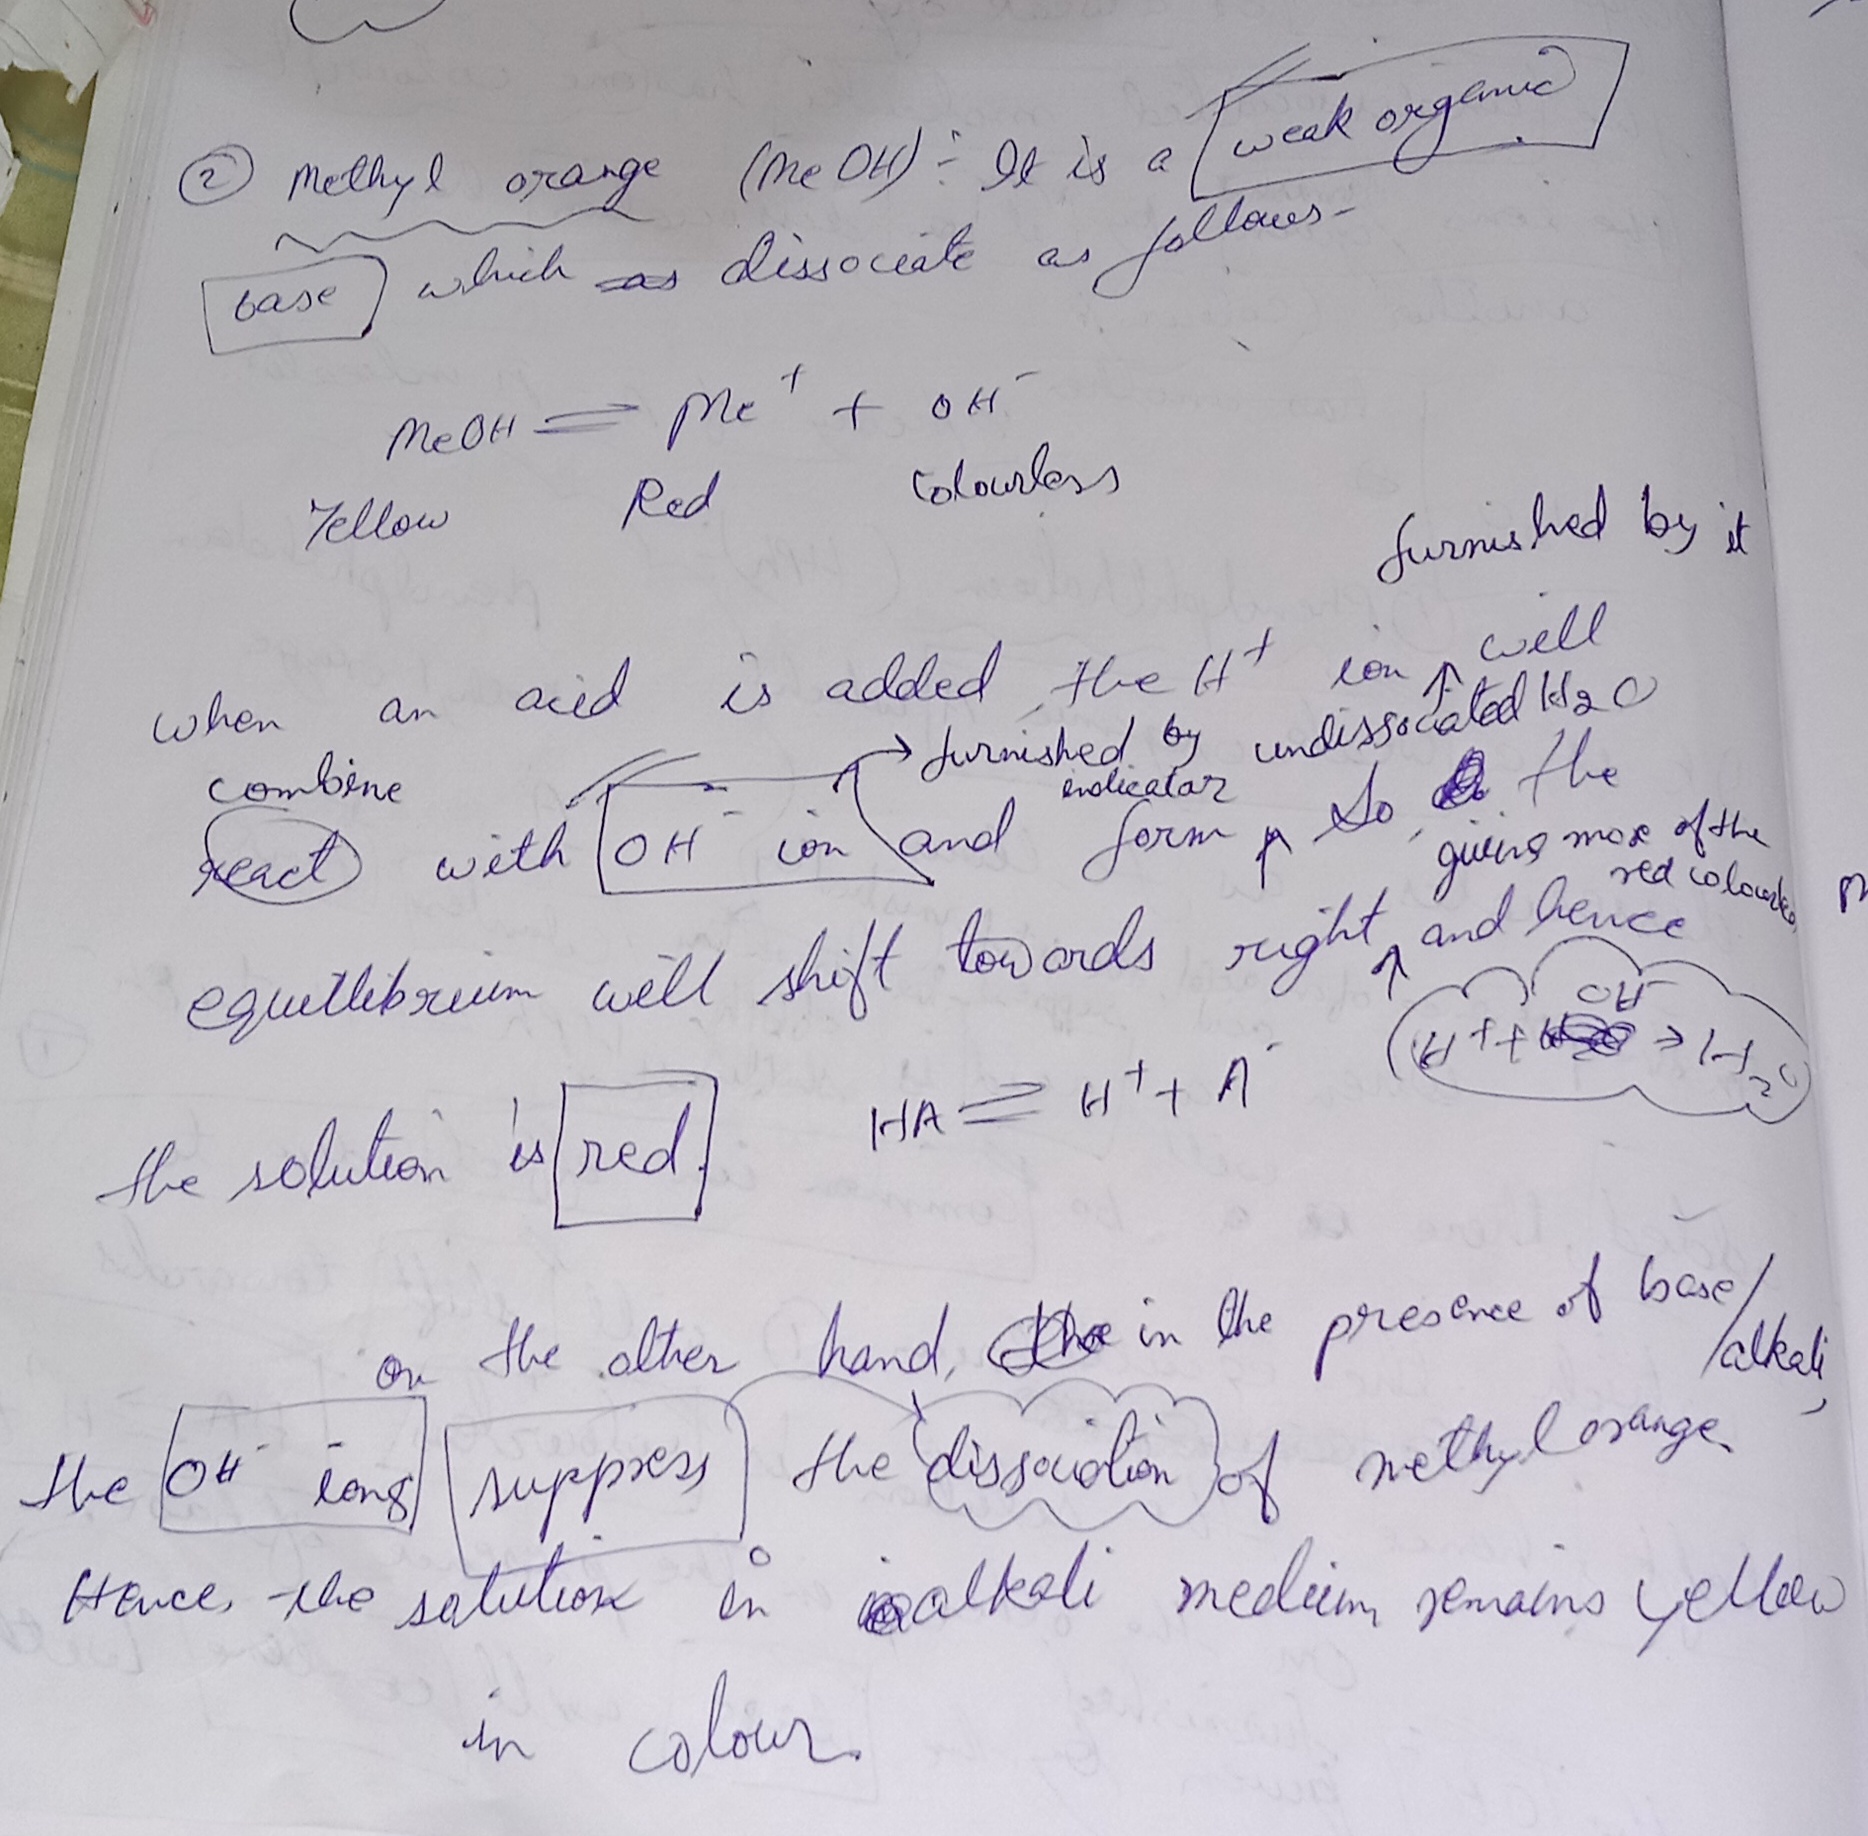 ② Methyl orange (MeOH) :- It is a weak organic
base which as dissociate as follows-
MeOH ⇌ Me⁺ + OH⁻
Yellow Red Colourless
furnished by it
when an acid is added, the H⁺ ion ↑ will
combine → furnished by undissociated H₂O
indicator
react with OH⁻ ion and form ↑ So, the
giving more of the
red coloured
equillibrium will shift towards right ↑ and hence
H⁺ + OH⁻ → H₂O
the solution is red. HA ⇌ H⁺ + A⁻
on the other hand, in the presence of base/
alkali,
the OH⁻ ions suppress the dissociation of methyl orange.
Hence, the solution in alkali medium remains yellow
in colour.